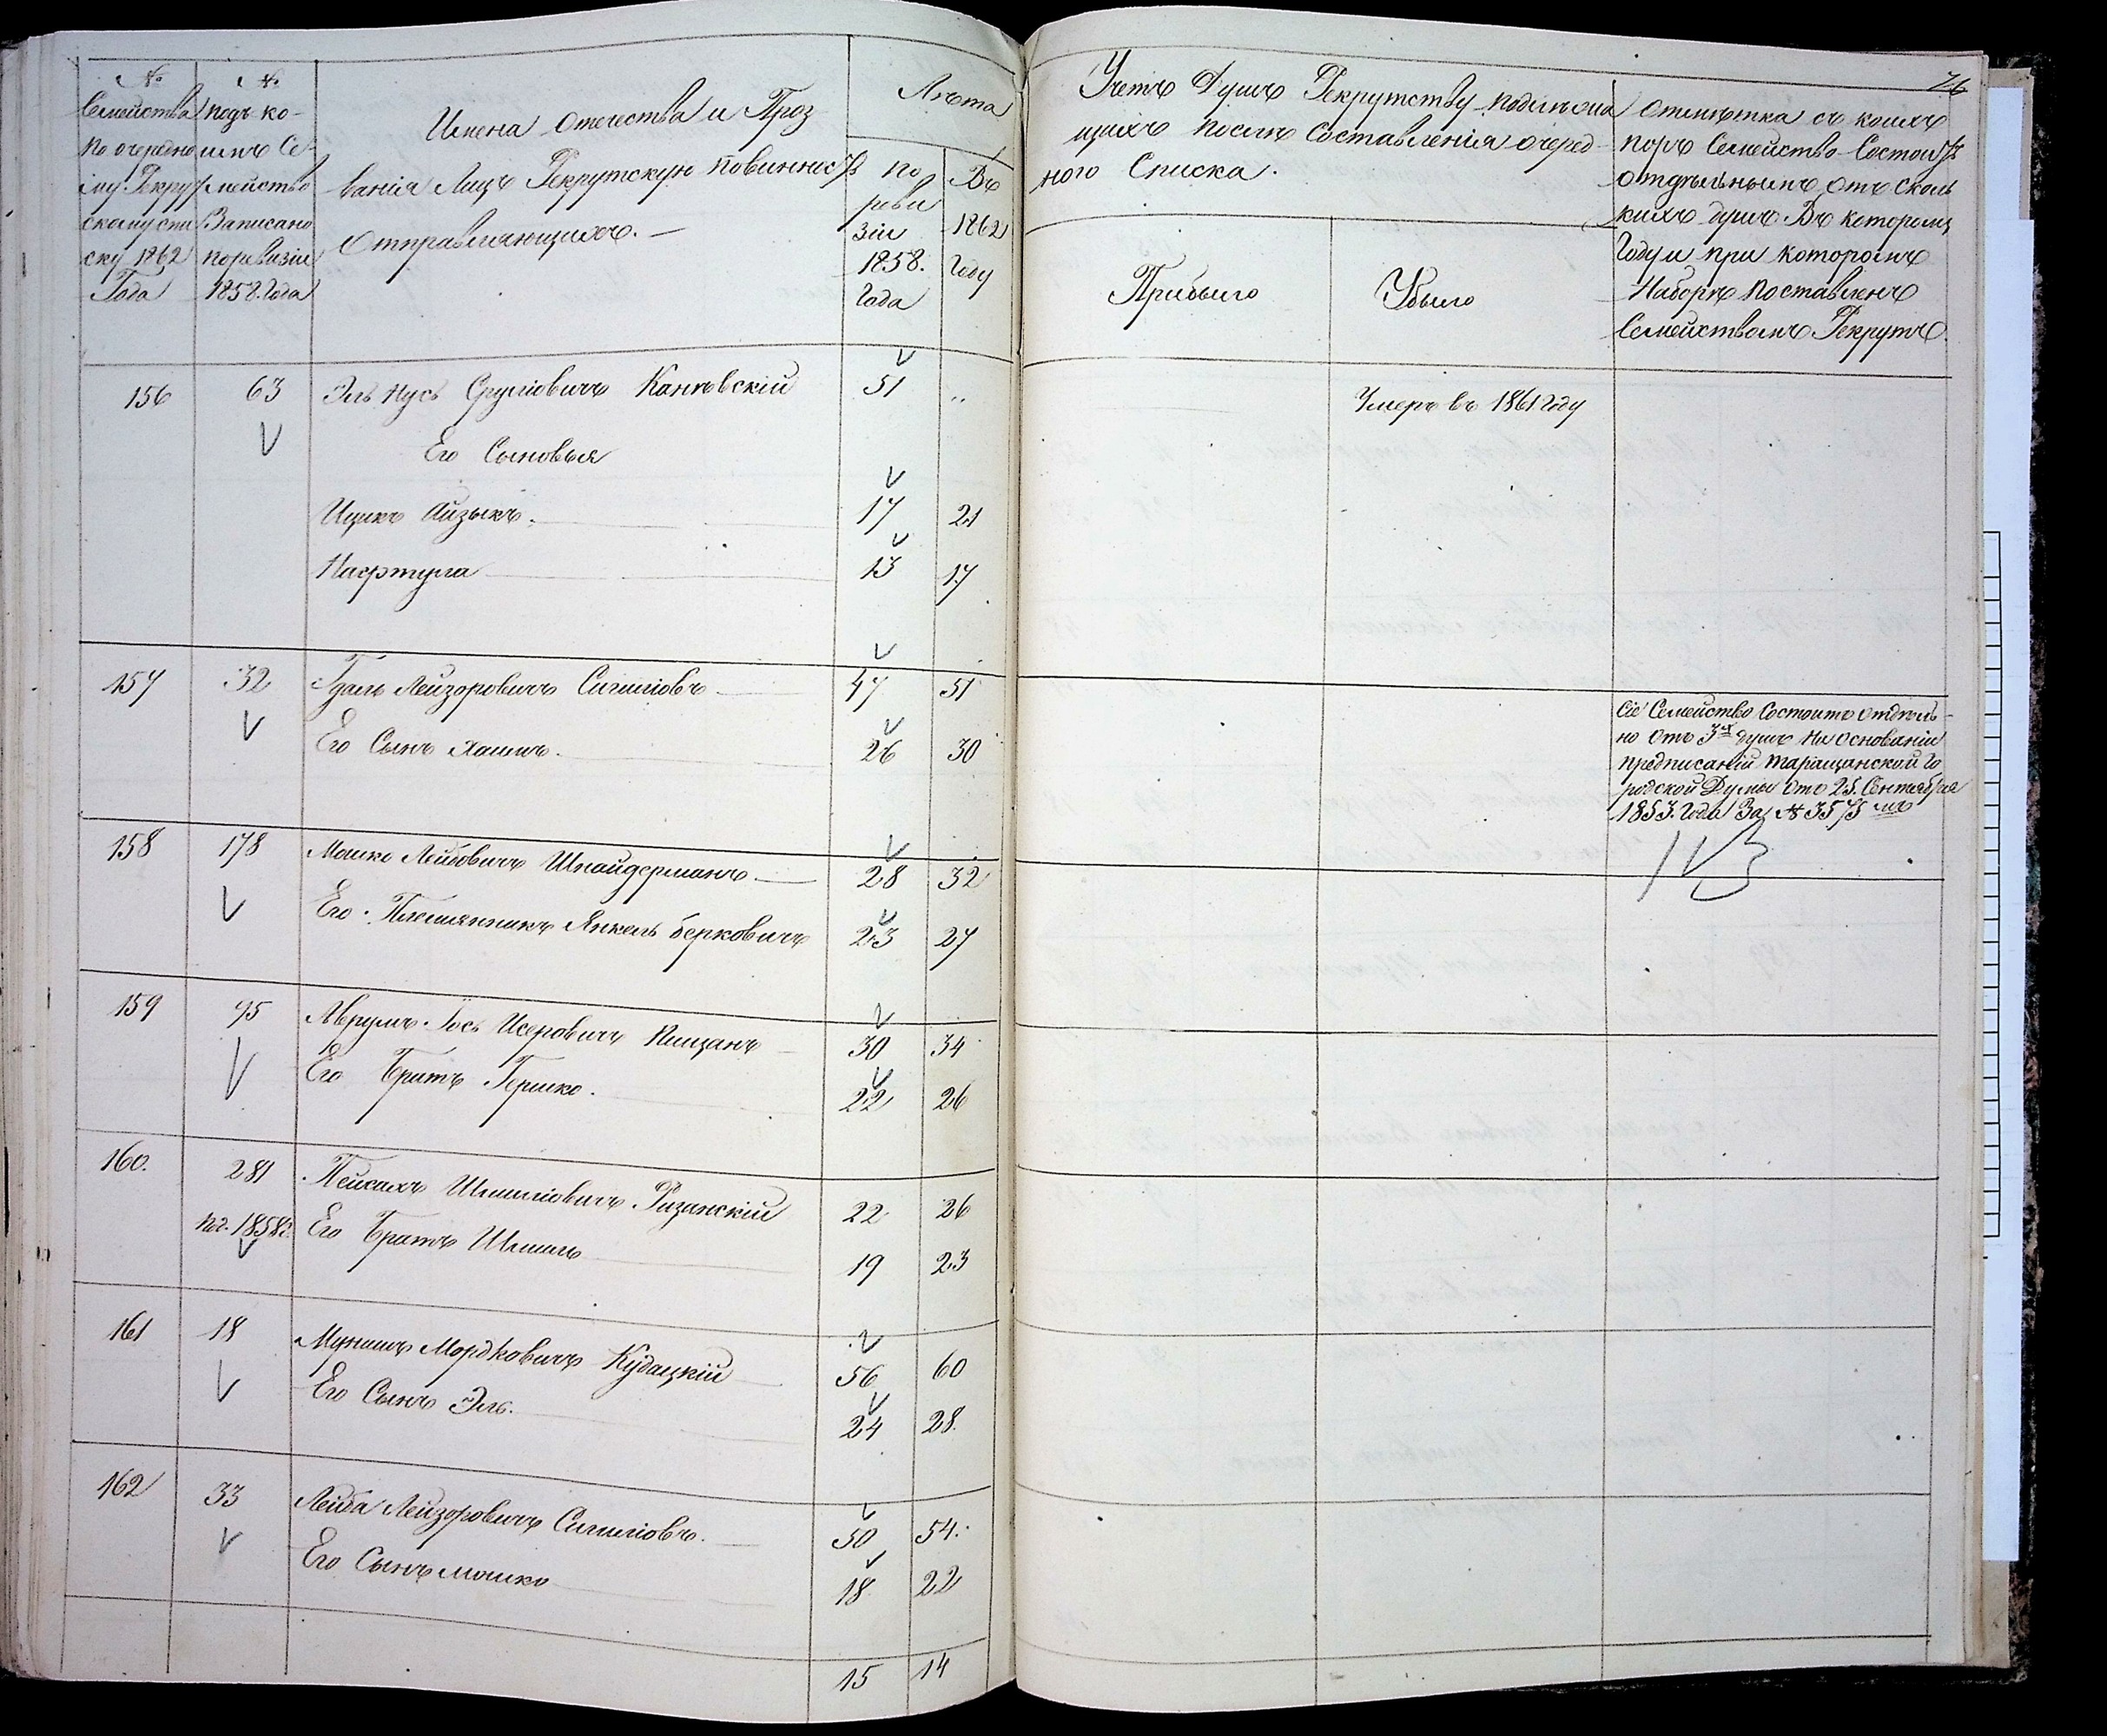 76
№
Семейства
по очередно
му Рекрут
скому спи
ску 1862
Года
№
подъ ко-
имъ Се-
мейство
Записано
по ревизіи
1858. Года
Имена Отечества и Проз
ванія Лицъ Рекрутскую повинность
Отправляющихъ. —
Лѣта
по
реви
зіи
1858.
Года
Въ
1862
Году
Учетъ Душъ Рекрутству подлежа
щихъ послѣ Составленія очеред-
ного Списка.
Прибыло
Убыло
Отмѣтка съ коихъ
поръ Семейство Состоитъ
отдѣльнымъ отъ сколь
кихъ душъ Въ которомъ
Году и при которомъ
Наборѣ поставленъ
Семействомъ Рекрутъ.
156 63 Эль Нусь Сруліовичъ Каневскій 51 „ Умеръ въ 1861 Году
Его Сыновья
Ицикъ Айзыкъ. 17 21
Нафтула 13 17
157 32 Гдаль Лейзоровичъ Сигаліовъ 47 51
Его Сынъ Хаимъ. 26 30
Сіе Семейство Состоитъ отдѣль-
но отъ 3х душъ На основаніи
предписаній Таращанской Го
родской Думы отъ 25. Сентября
1853. Года За № 3575 мъ
158 178 Мошко Лейбовичъ Шнайдерманъ 28 32
Его Племянникъ Янкель Берковичъ 23 27
159 95 Аврумъ Іось Исеровичъ Лищанъ 30 34
Его Братъ Гершко. 22 26
160. 281 Пейсахъ Шмиліовичъ Ризанскій 22 26
по г. 1858 г. Его Братъ Шмиль 19 23
161 18 Мунишъ Мордковичъ Кудацкій 56 60
Его Сынъ Эль. 24 28.
162 33 Лейба Лейзоровичъ Сигаліовъ. 50 54.
Его Сынъ Мошко 18 22
15 14